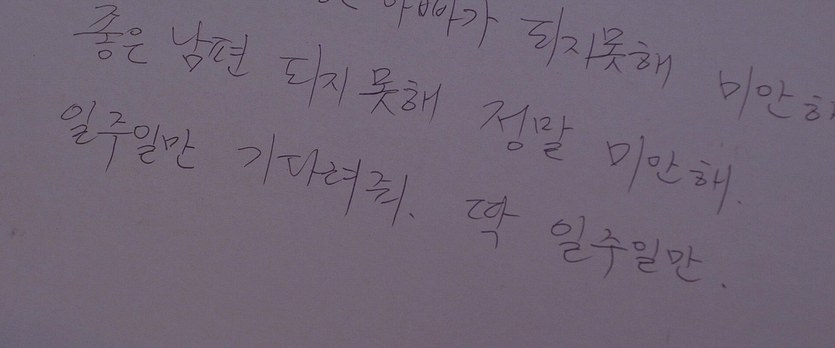 아빠가 되지못해 미안해
좋은 남편 되지 못해 정말 미안해.
일주일만 기다려줘. 딱 일주일만.